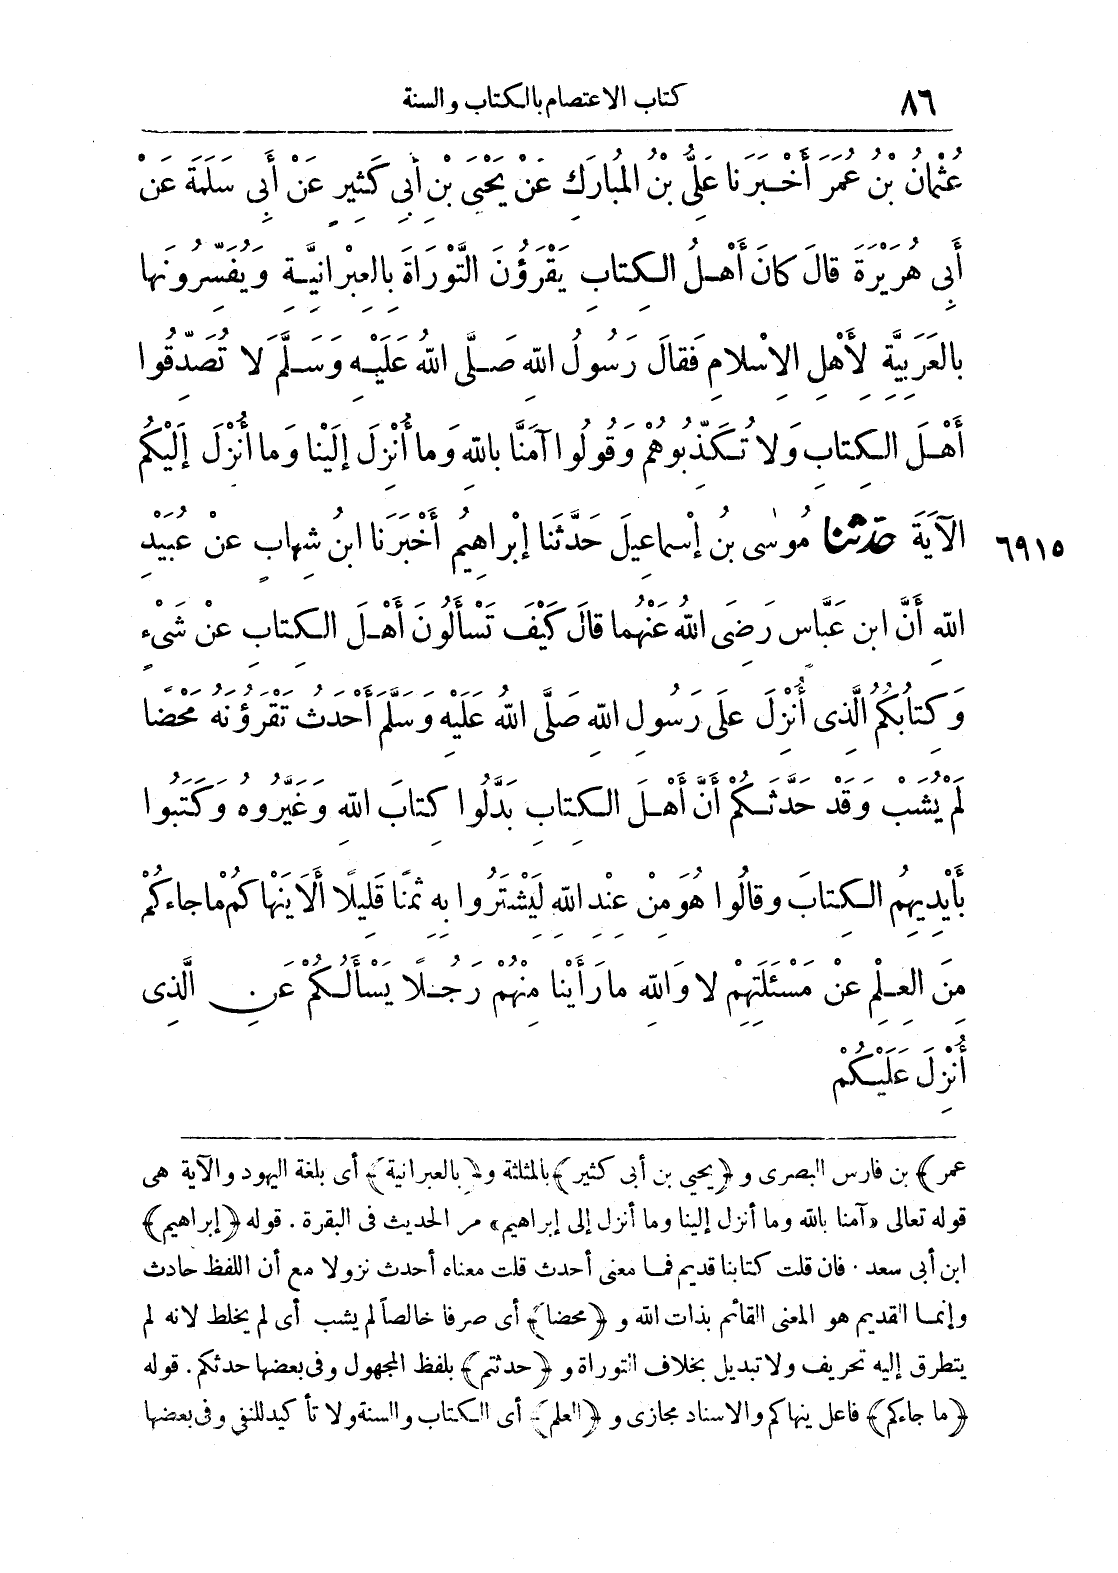 ٨٦ كتاب الاعتصام بالكتاب والسنة
عُثْمانُ بْنُ عُمَرَ أَخْبَرَنا عَلِيُّ بْنُ المُبارَكِ عَنْ يَحْيَى بْنِ أَبِى كَثِيرٍ عَنْ أَبِى سَلَمَةَ عَنْ
أَبِى هُرَيْرَةَ قالَ كانَ أَهْلُ الكِتابِ يَقْرَؤُنَ التَّوْرَاةَ بِالعِبْرانِيَّةِ وَيُفَسِّرُونَها
بِالعَرَبِيَّةِ لِأَهْلِ الإِسْلامِ فَقالَ رَسُولُ اللهِ صَلَّى اللهُ عَلَيْهِ وَسَلَّمَ لا تُصَدِّقُوا
أَهْلَ الكِتابِ وَلا تُكَذِّبُوهُمْ وَقُولُوا آمَنَّا بِاللهِ وَما أُنْزِلَ إِلَيْنا وَما أُنْزِلَ إِلَيْكُمْ
٦٩١٥ الآيَةَ حَدَّثَنا مُوسٰى بنُ إِسْماعِيلَ حَدَّثَنا إِبْراهِيمُ أَخْبَرَنا ابنُ شِهابٍ عنْ عُبَيْدِ
اللهِ أَنَّ ابن عَبَّاس رَضِىَ اللهُ عَنْهُما قالَ كَيْفَ تَسْأَلُونَ أَهْلَ الكِتابِ عنْ شَىْءٍ
وَكِتابُكُمُ الَّذِى أُنْزِلَ عَلَى رَسُولِ اللهِ صَلَّى اللهُ عَلَيْهِ وَسَلَّمَ أَحْدَثُ تَقْرَؤُنَهُ مَحْضًا
لَمْ يُشَبْ وَقَدْ حَدَّثَكُمْ أَنَّ أَهْلَ الكِتابِ بَدَّلُوا كِتابَ اللهِ وَغَيَّرُوهُ وَكَتَبُوا
بِأَيْدِيهِمُ الكِتابَ وقالُوا هُوَ مِنْ عِنْدِ اللهِ لِيَشْتَرُوا بِهِ ثَمنًا قَلِيلًا أَلا يَنْهاكُمْ ما جاءَكُمْ
مِنَ العِلْمِ عنْ مَسْئَلَتِهِمْ لا وَاللهِ ما رَأَيْنا مِنْهُمْ رَجُلًا يَسْأَلُكُمْ عَنِ الَّذِى
أُنْزِلَ عَلَيْكُمْ
عمر﴾ بن فارس البصرى و ﴿يحيى بن أبى كثير﴾ بالمثلثة و﴿بالعبرانية﴾ أى بلغة اليهود والآية هى
قوله تعالى «آمنا بالله وما أنزل إلينا وما أنزل إلى إبراهيم» مر الحديث فى البقرة . قوله ﴿إبراهيم﴾
ابن أبى سعد . فان قلت كتابنا قديم فما معنى أحدث قلت معناه أحدث نزولا مع أن اللفظ حادث
وإنما القديم هو المعنى القائم بذات الله و ﴿محضا﴾ أى صرفا خالصاً لم يشب أى لم يخلط لانه لم
يتطرق إليه تحريف ولا تبديل بخلاف التوراة و ﴿حدثتم﴾ بلفظ المجهول وفى بعضها حدثكم . قوله
﴿ما جاءكم﴾ فاعل ينهاكم والاسناد مجازى و ﴿العلم﴾ أى الكتاب والسنة ولا تأكيد للنفى وفى بعضها